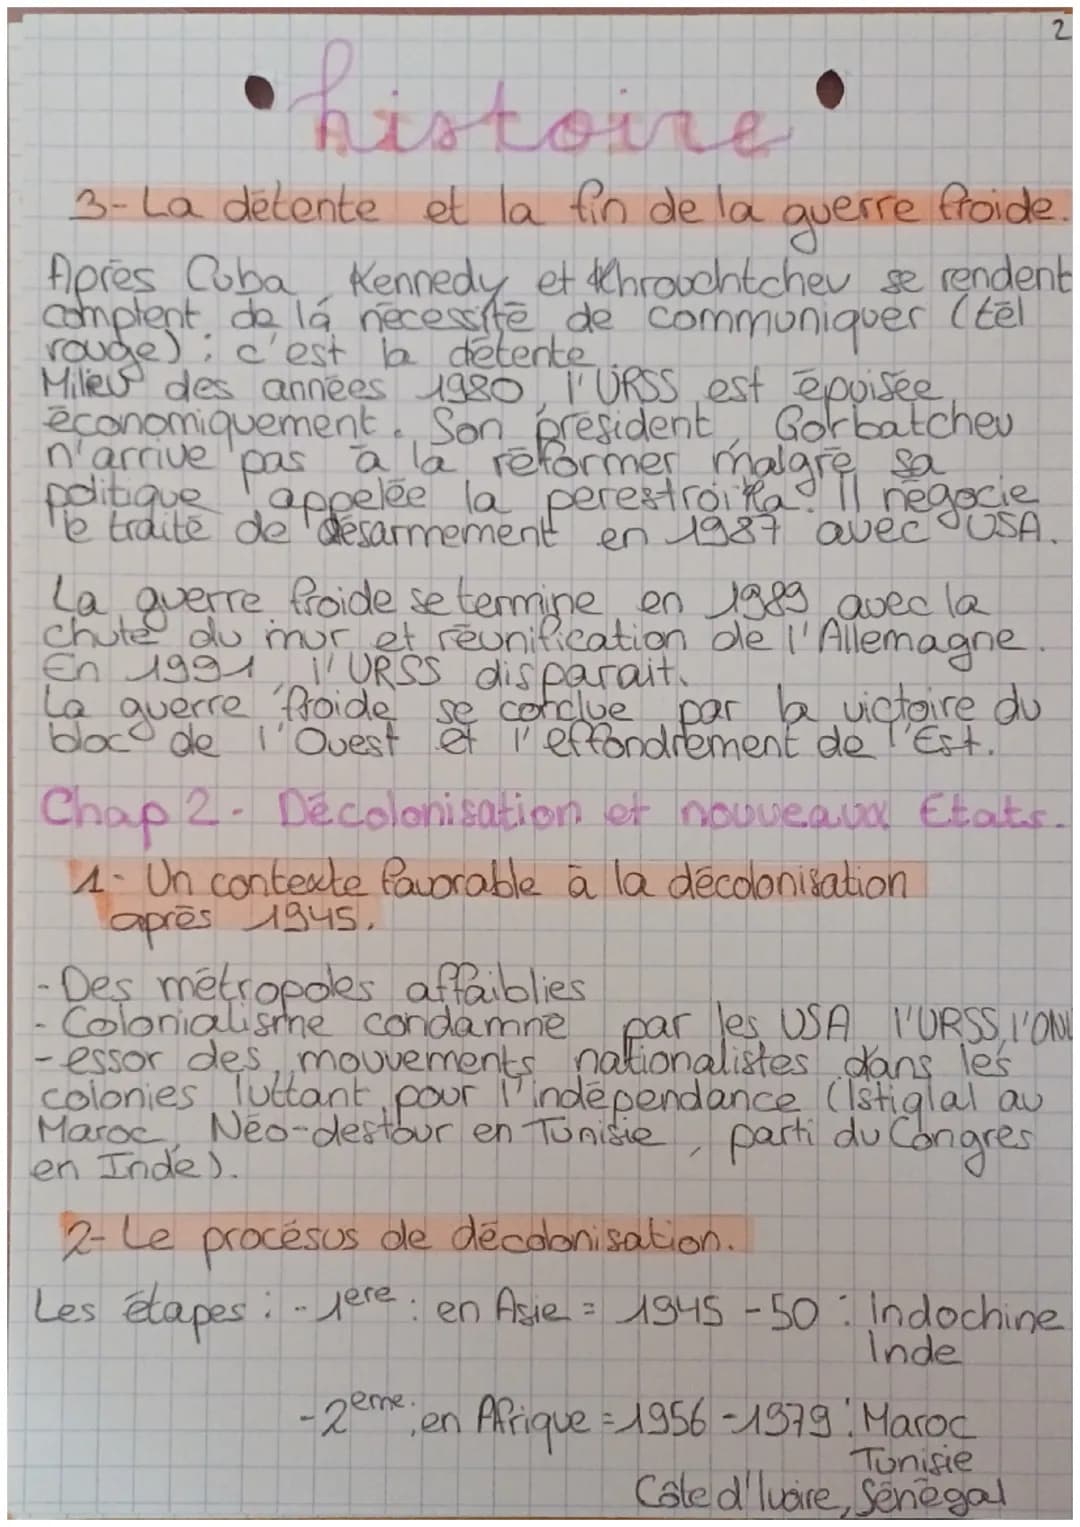 2
histoire
3-La détente et la fin de la guerre froide.
Après Cuba, Kennedy et Khrouchtchev se rendent
comptent de la nécessité de communiquer (tél
rouge) : c'est la détente.
Milieu des années 1980, l'URSS est épuisée
économiquement. Son président, Gorbatchev
n'arrive pas à la réformer malgré sa
politique appelée la perestroïka. Il négocie
le traité de désarmement en 1987 avec USA.
La guerre froide se termine en 1989 avec la
chute du mur et réunification de l'Allemagne.
En 1991, l'URSS disparait.
La guerre froide se conclue par la victoire du
bloc de l'Ouest et l'effondrement de l'Est.
Chap 2 - Décolonisation et nouveaux Etats.
1- Un contexte favorable à la décolonisation
après 1945.
- Des métropoles affaiblies
- Colonialisme condamné par les USA, l'URSS, l'ONU
- essor des mouvements nationalistes dans les
colonies luttant pour l'indépendance (Istiglal au
Maroc, Néo-destour en Tunisie, parti du Congres
en Inde).
2- Le procésus de décolonisation.
Les étapes : - 1ere : en Asie = 1945 - 50 : Indochine
Inde
- 2eme : en Afrique = 1956 - 1979 : Maroc
Tunisie
Côte d'Ivoire, Sénégal